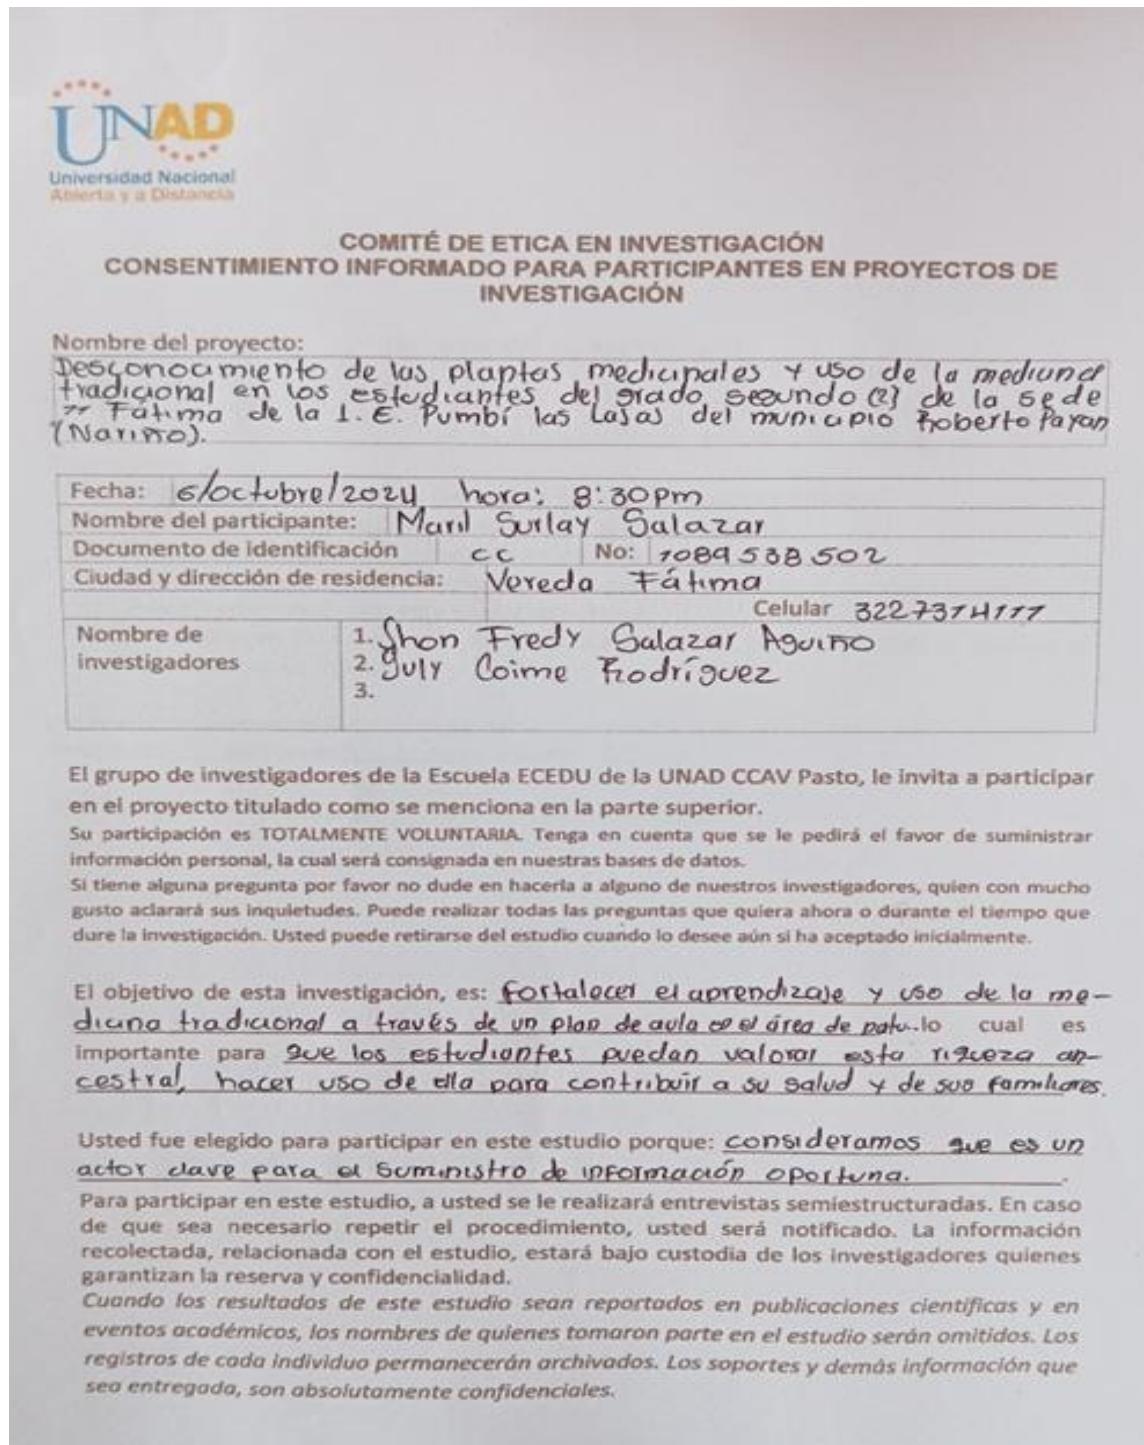 UNAD
Universidad Nacional
Abierta y a Distancia
COMITÉ DE ETICA EN INVESTIGACIÓN
CONSENTIMIENTO INFORMADO PARA PARTICIPANTES EN PROYECTOS DE
INVESTIGACIÓN
Nombre del proyecto:
Desconocimiento de las plantas medicinales y uso de la medicina
tradicional en los estudiantes del grado segundo (2) de la sede
Fátima de la I.E. Pumbí las Lajas del municipio Roberto Payan
(Nariño).
Fecha: 6/octubre/2024 hora: 8:30pm
Nombre del participante: Surlay Salazar
Documento de identificación cc No: 1089538502
Ciudad y dirección de residencia: Vereda Fátima
Celular
Nombre de investigadores
1. Jhon Fredy Salazar Aguiño
2. July Coime Rodríguez
3.
El grupo de investigadores de la Escuela ECEDU de la UNAD CCAV Pasto, le invita a participar
en el proyecto titulado como se menciona en la parte superior.
Su participación es TOTALMENTE VOLUNTARIA. Tenga en cuenta que se le pedirá el favor de suministrar
información personal, la cual será consignada en nuestras bases de datos.
Si tiene alguna pregunta por favor no dude en hacerla a alguno de nuestros investigadores, quien con mucho
gusto aclarará sus inquietudes. Puede realizar todas las preguntas que quiera ahora o durante el tiempo que
dure la investigación. Usted puede retirarse del estudio cuando lo desee aún si ha aceptado inicialmente.
El objetivo de esta investigación, es: Fortalecer el aprendizaje y uso de la me-
dicina tradicional a través de un plan de aula en el área de natu. lo cual es
importante para que los estudiantes puedan valorar esta riqueza an-
cestral, hacer uso de ella para contribuir a su salud y de sus familiares.
Usted fue elegido para participar en este estudio porque: consideramos que es un
actor clave para el suministro de información oportuna.
Para participar en este estudio, a usted se le realizará entrevistas semiestructuradas. En caso
de que sea necesario repetir el procedimiento, usted será notificado. La información
recolectada, relacionada con el estudio, estará bajo custodia de los investigadores quienes
garantizan la reserva y confidencialidad.
Cuando los resultados de este estudio sean reportados en publicaciones científicas y en
eventos académicos, los nombres de quienes tomaron parte en el estudio serán omitidos. Los
registros de cada individuo permanecerán archivados. Los soportes y demás información que
sea entregada, son absolutamente confidenciales.